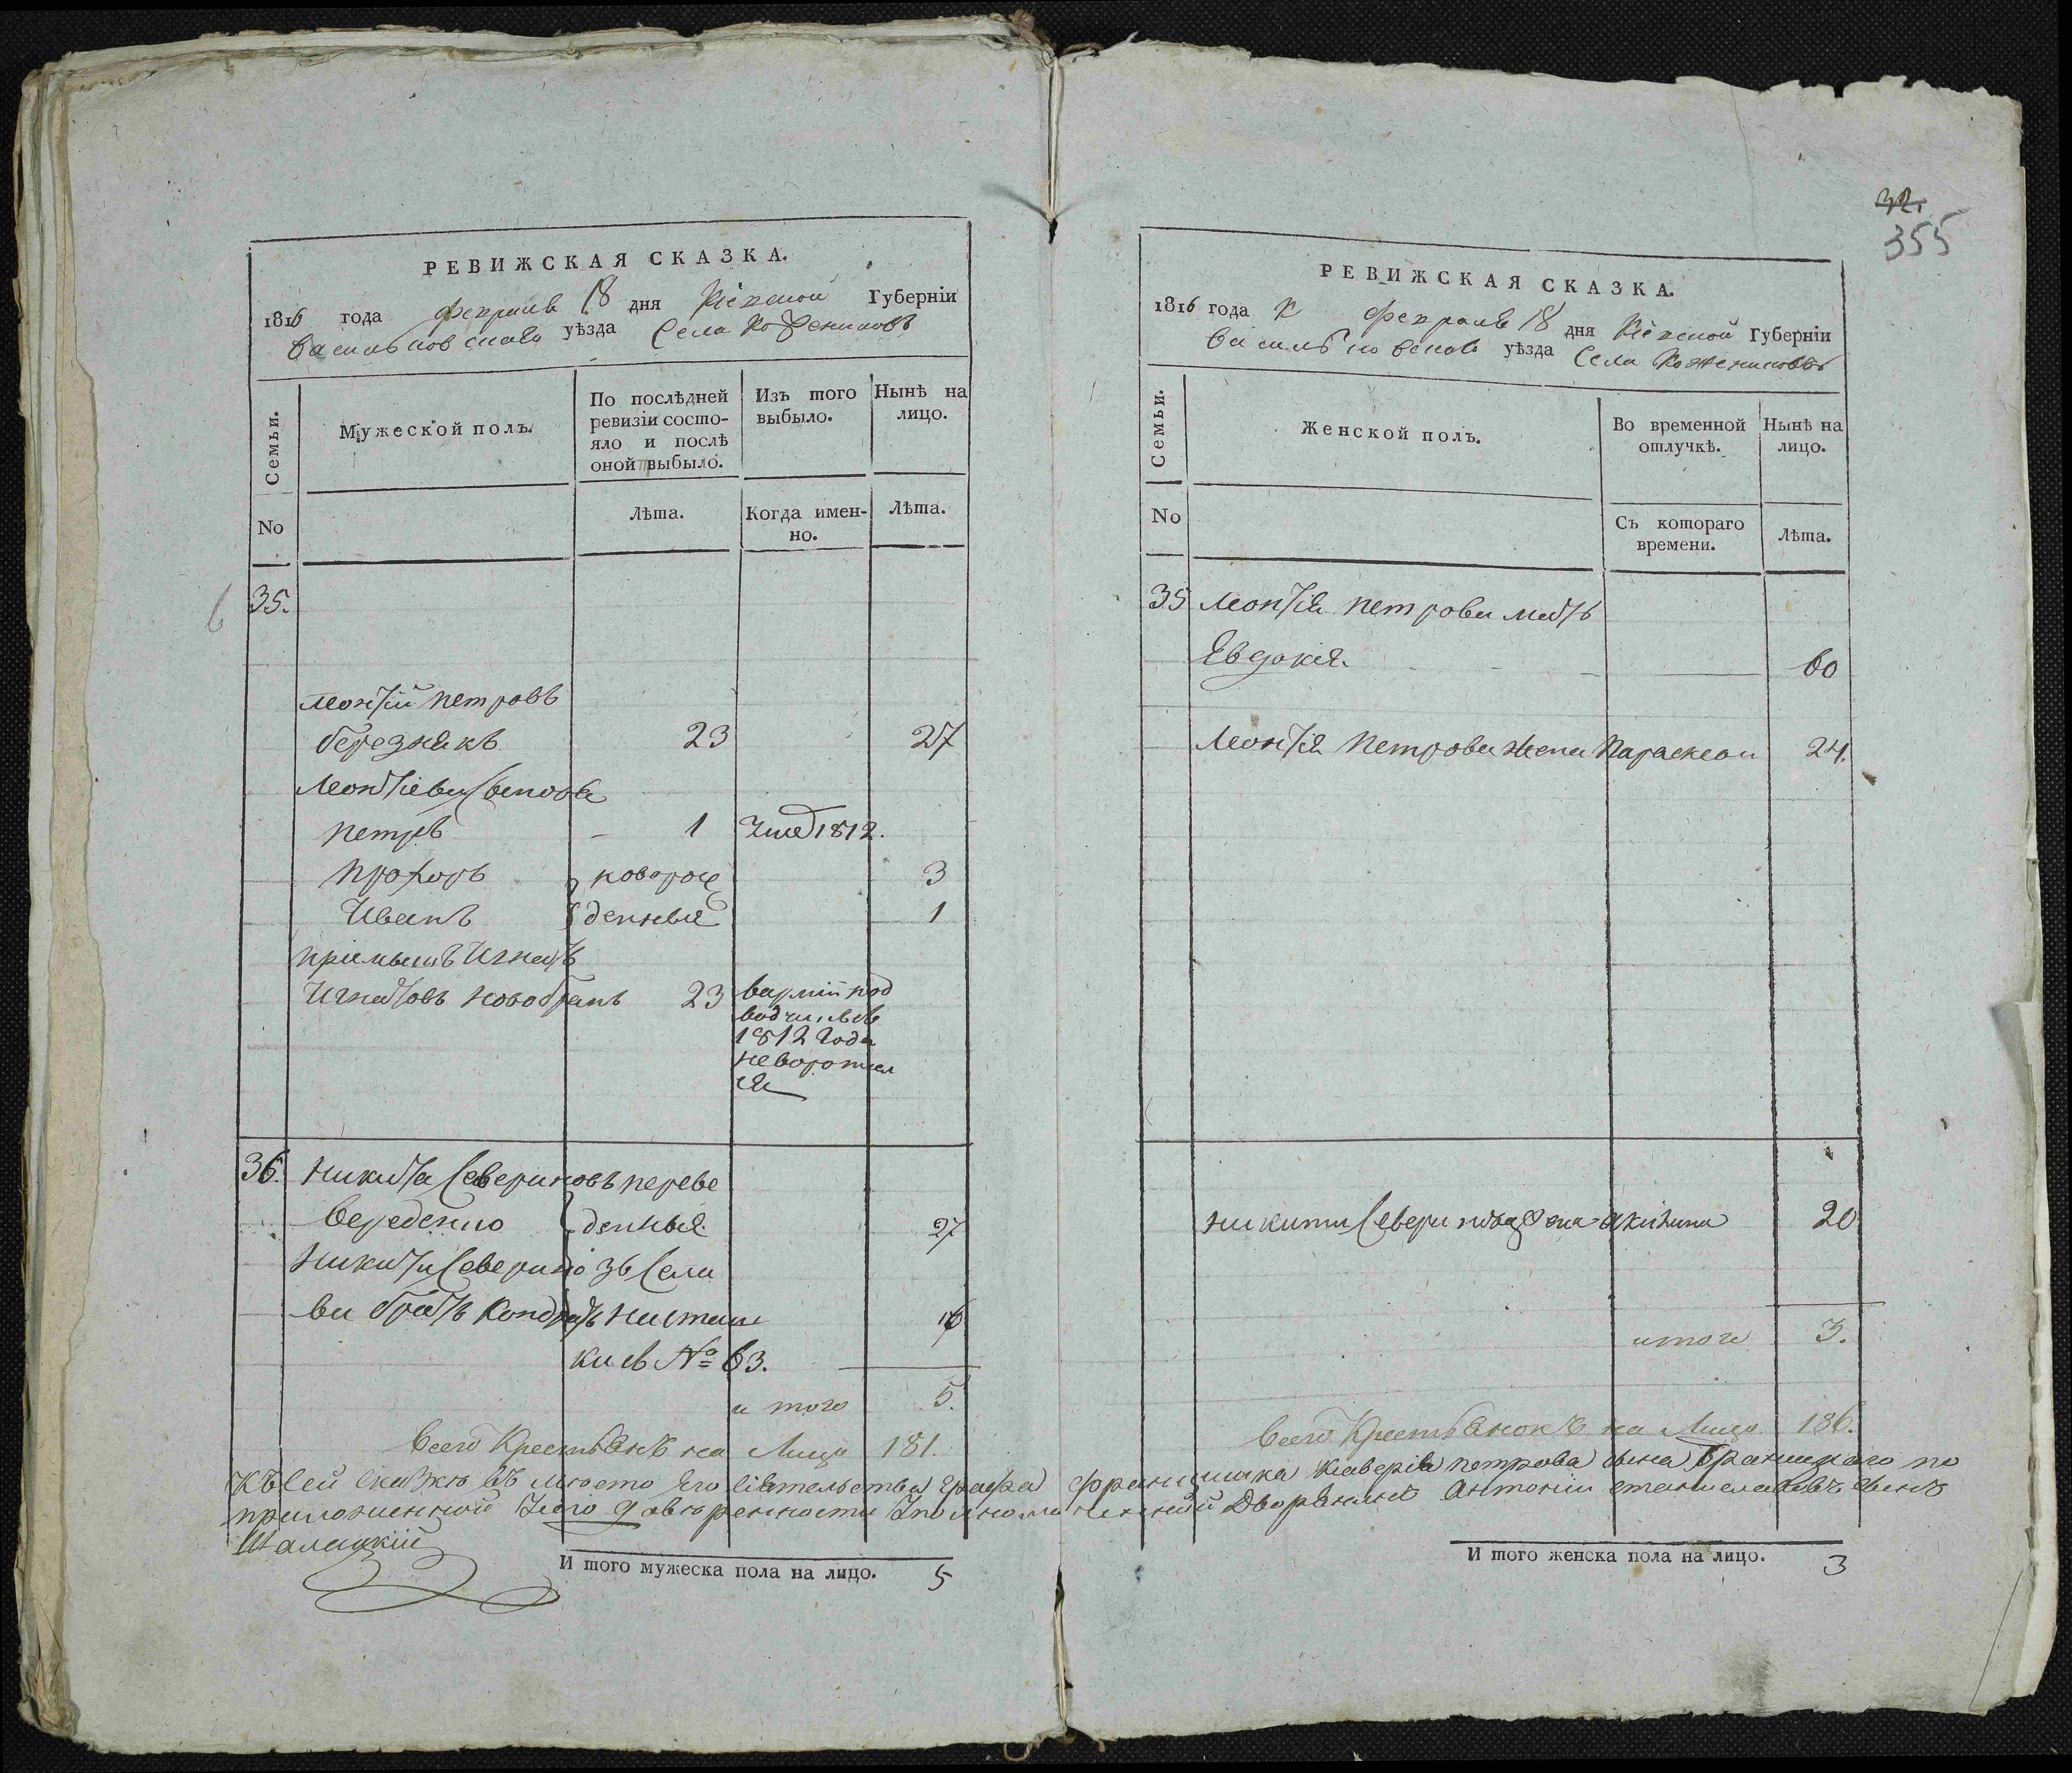 32.
355
РЕВИЖСКАЯ СКАЗКА.
1816 года февраля 18 дня Кіевской Губерніи
васильковскаго уѣзда Села Кожениковъ
Семьи.
No
Мужеской полъ.
По послѣдней
ревизіи состо-
яло и послѣ
оной выбыло.
Лѣта.
Изъ того
выбыло.
Когда имен-
но.
Нынѣ на
лицо.
Лѣта.
35.
Монтій петровъ
березнякъ 23 27
Леонтіеви Синовя
петръ 1 Умед 1812.
прохоръ новорож 3
Иванъ денныя 1
пріимышъ Игнатъ
Игнатовъ новобранъ 23 вармій под
водчи
1812 года
неворотил
ся
36. Никита Севериновъ переве
вереденко денныя 27
Никити Северино зъ Села
ва братъ Кондратъ Насташ 16
ки съ № 63.
и того 5.
Всего Крестьянъ на Лицо 181.
И того мужеска пола на лицо. 5
РЕВИЖСКАЯ СКАЗКА.
1816 года февраля 18 дня Кіевской Губерніи
васильковскаго уѣзда Села Кожениковъ
Семьи.
No
Женской полъ.
Во временной
отлучкѣ.
Съ котораго
времени.
Нынѣ на
лицо.
Лѣта.
35 Монтія петрова мать
Евдокія. 60
Монтія Петрова жена Параскева 24.
никити Северинова жена Акилина 20
итого 3.
Всего Крестьянокъ на Лицо 186.
Къ сей скажке въ место его сіятельства Графа Францишка Ксаверія петрова сына Браницкаго по
приложенной доверенности Уполномоченный Дворянинъ Антоній станиславовъ сынъ
Шалацкій
И того женска пола на лицо. 3